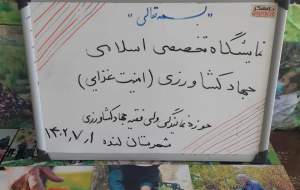 بسمه تعالی
نمایشگاه تخصصی اسلامی
جهاد کشاورزی (امنیت غذایی)
حوزه نمایندگی ولی فقیه جهاد کشاورزی
شهرستان لنده ۱۴۰۲/۷/۱